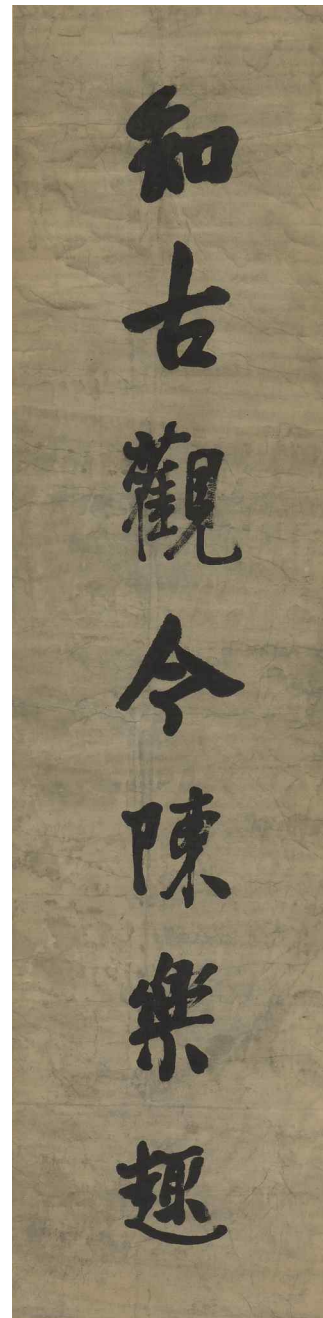 知古觀今陳樂趣